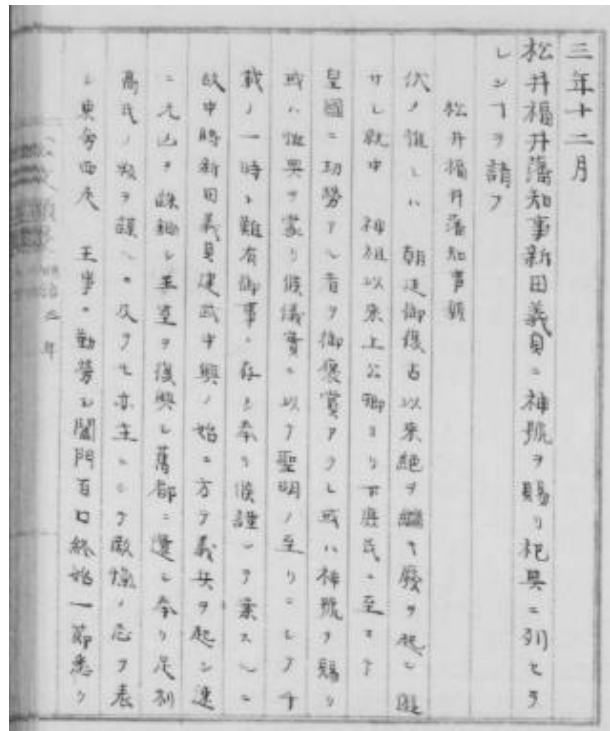 三年十二月
松井福井藩知事新田義貞ニ神號ヲ賜リ祀典ニ列セラ
レンヿヲ請フ
松井福井藩知事願
伏テ惟レハ 朝廷御復古以来絶ヲ繼キ廢ヲ起シ
サレ就中 神祖以来上公卿ヨリ下庶民ニ至マテ
皇國ニ功勞アル者ヲ御褒賞アラレ或ハ神號ヲ賜リ
或ハ世典ヲ蒙リ候儀實ニ以テ聖明ノ至リニシテ千
載ノ一時ト難有御事ニ存シ奉リ候謹シテ案スルニ
故中將新田義貞建武中興ノ始ニ方テ義兵ヲ起シ速
ニ元凶ヲ誅鋤シ王室ヲ復興シ舊都ニ還シ奉リ足利
高氏ノ叛ヲ謀ルニ及テモ亦主トシテ敵愾ノ忠ヲ表
シ東奔西走 王事ニ勤勞シ闔門百口終始一節悉ク